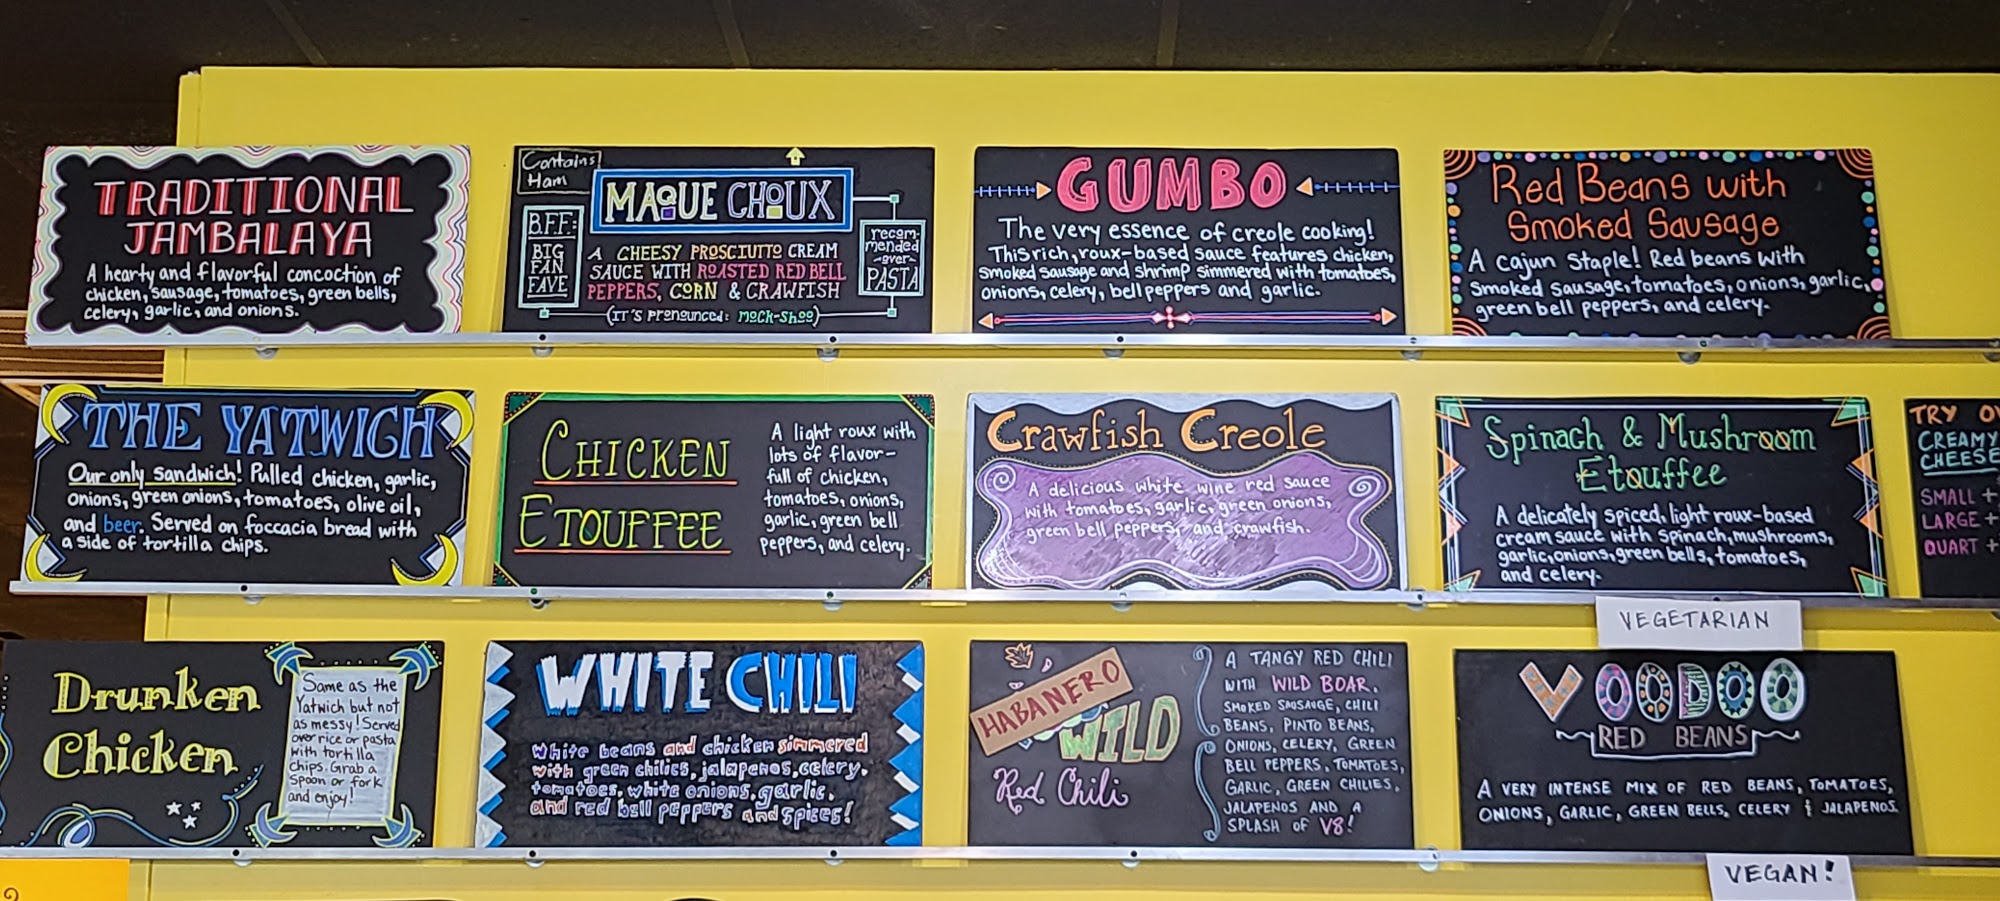 TRADITIONAL
JAMBALAYA
A hearty and flavorful concoction of
chicken, sausage, tomatoes, green bells,
celery, garlic, and onions.
Contains
Ham
B.F.F.:
BIG
FAN
FAVE
MAQUE CHOUX
A CHEESY PROSCIUTTO CREAM
SAUCE WITH ROASTED RED BELL
PEPPERS, CORN & CRAWFISH
(IT'S PRONOUNCED: MOCK-SHOO)
recom-
mended
-over-
PASTA
GUMBO
The very essence of creole cooking!
This rich, roux-based sauce features chicken,
smoked sausage and shrimp simmered with tomatoes,
onions, celery, bell peppers and garlic.
Red Beans with
Smoked Sausage
A cajun staple! Red beans with
smoked sausage, tomatoes, onions, garlic,
green bell peppers, and celery.
THE YATWICH
Our only sandwich! Pulled chicken, garlic,
onions, green onions, tomatoes, olive oil,
and beer. Served on foccacia bread with
a side of tortilla chips.
CHICKEN
ETOUFFEE
A light roux with
lots of flavor-
full of chicken,
tomatoes, onions,
garlic, green bell
peppers, and celery.
Crawfish Creole
A delicious white wine red sauce
with tomatoes, garlic, green onions,
green bell peppers, and crawfish.
Spinach & Mushroom
Etouffee
A delicately spiced, light roux-based
cream sauce with spinach, mushrooms,
garlic, onions, green bells, tomatoes,
and celery.
VEGETARIAN
TRY
CREAMY
CHEESE
SMALL +
LARGE +
QUART +
Drunken
Chicken
Same as the
Yatwich but not
as messy! Served
over rice or pasta
with tortilla
chips. Grab a
spoon or fork
and enjoy!
WHITE CHILI
white beans and chicken simmered
with green chilies, jalapenos, celery,
tomatoes, white onions, garlic,
and red bell peppers and spices!
HABANERO
WILD
Red Chili
A TANGY RED CHILI
WITH WILD BOAR,
SMOKED SAUSAGE, CHILI
BEANS, PINTO BEANS,
ONIONS, CELERY, GREEN
BELL PEPPERS, TOMATOES,
GARLIC, GREEN CHILIES,
JALAPENOS AND A
SPLASH OF V8!
VOODOO
RED BEANS
A VERY INTENSE MIX OF RED BEANS, TOMATOES,
ONIONS, GARLIC, GREEN BELLS, CELERY & JALAPENOS.
VEGAN!